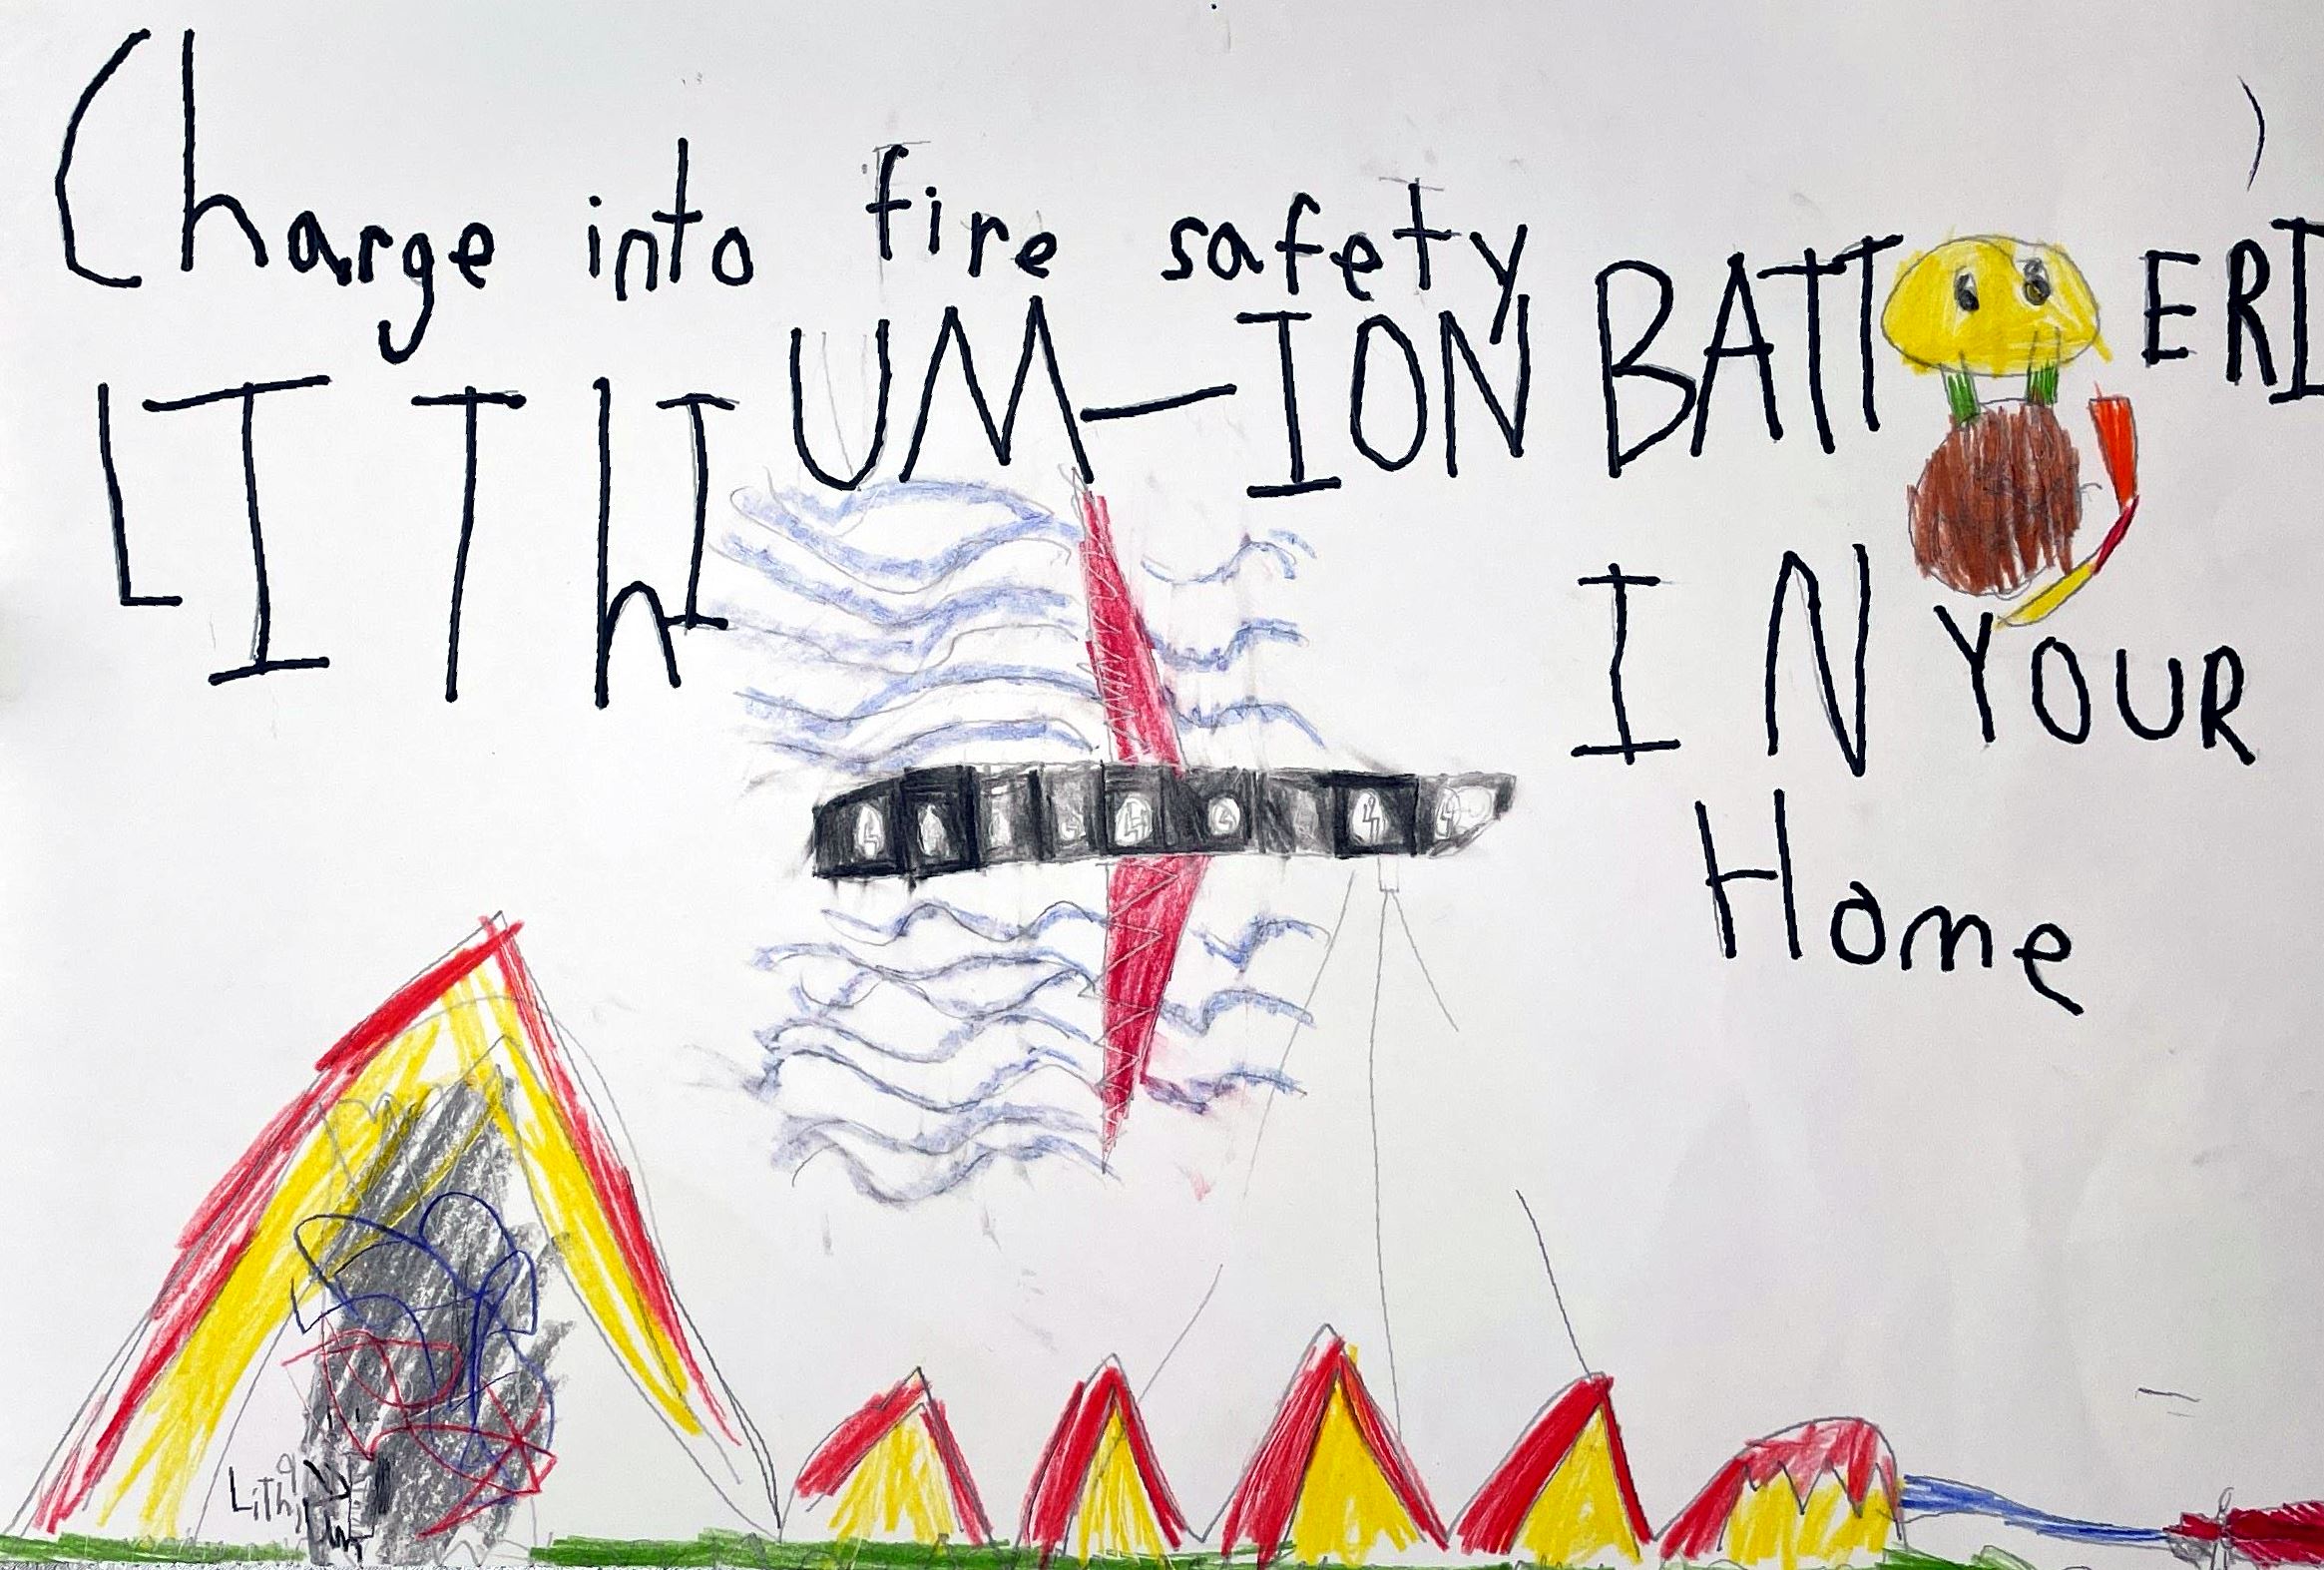 Charge into fire safety
LITHIUM-ION BATTERI
IN YOUR
Home